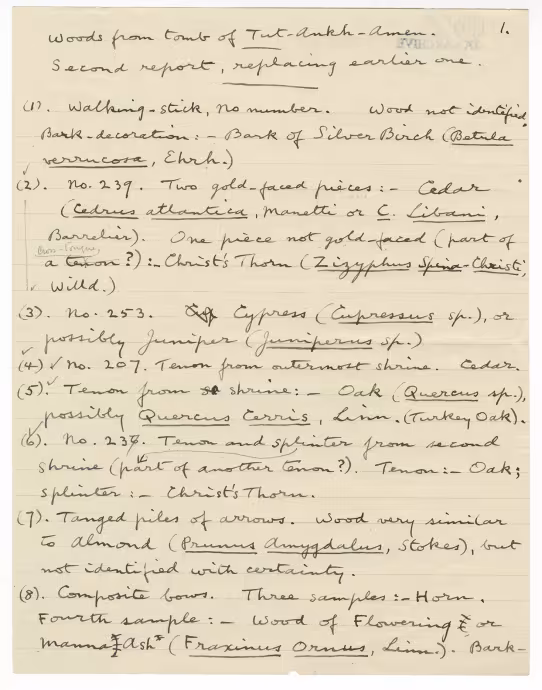 1.
Woods from tomb of Tut-Ankh-Amen.
Second report, replacing earlier one.
(1). Walking-stick, no number. Wood not identified.
Bark-decoration:- Bark of Silver Birch (Betula
verrucosa, Ehrh.)
(2). No. 239. Two gold-faced pieces:- Cedar
(Cedrus atlantica, Manetti or C. Libani,
Barrelier). One piece not gold-faced (part of
Cross-tongue,
a tenon?):- Christ's Thorn (Zizyphus Spina-Christi,
Willd.)
(3). No. 253. Cypress (Cupressus sp.), or
possibly Juniper (Juniperus sp.)
(4) No. 207. Tenon from outermost shrine. Cedar.
(5). Tenon from shrine:- Oak (Quercus sp.),
possibly Quercus Cerris, Linn. (Turkey Oak).
(6). No. 239. Tenon and splinter from second
shrine (part of another tenon?). Tenon:- Oak;
splinter:- Christ's Thorn.
(7). Tanged piles of arrows. Wood very similar
to Almond (Prunus Amygdalus, Stokes), but
not identified with certainty.
(8). Composite bows. Three samples:- Horn.
Fourth sample:- Wood of Flowering or
Manna Ash (Fraxinus Ornus, Linn.). Bark-